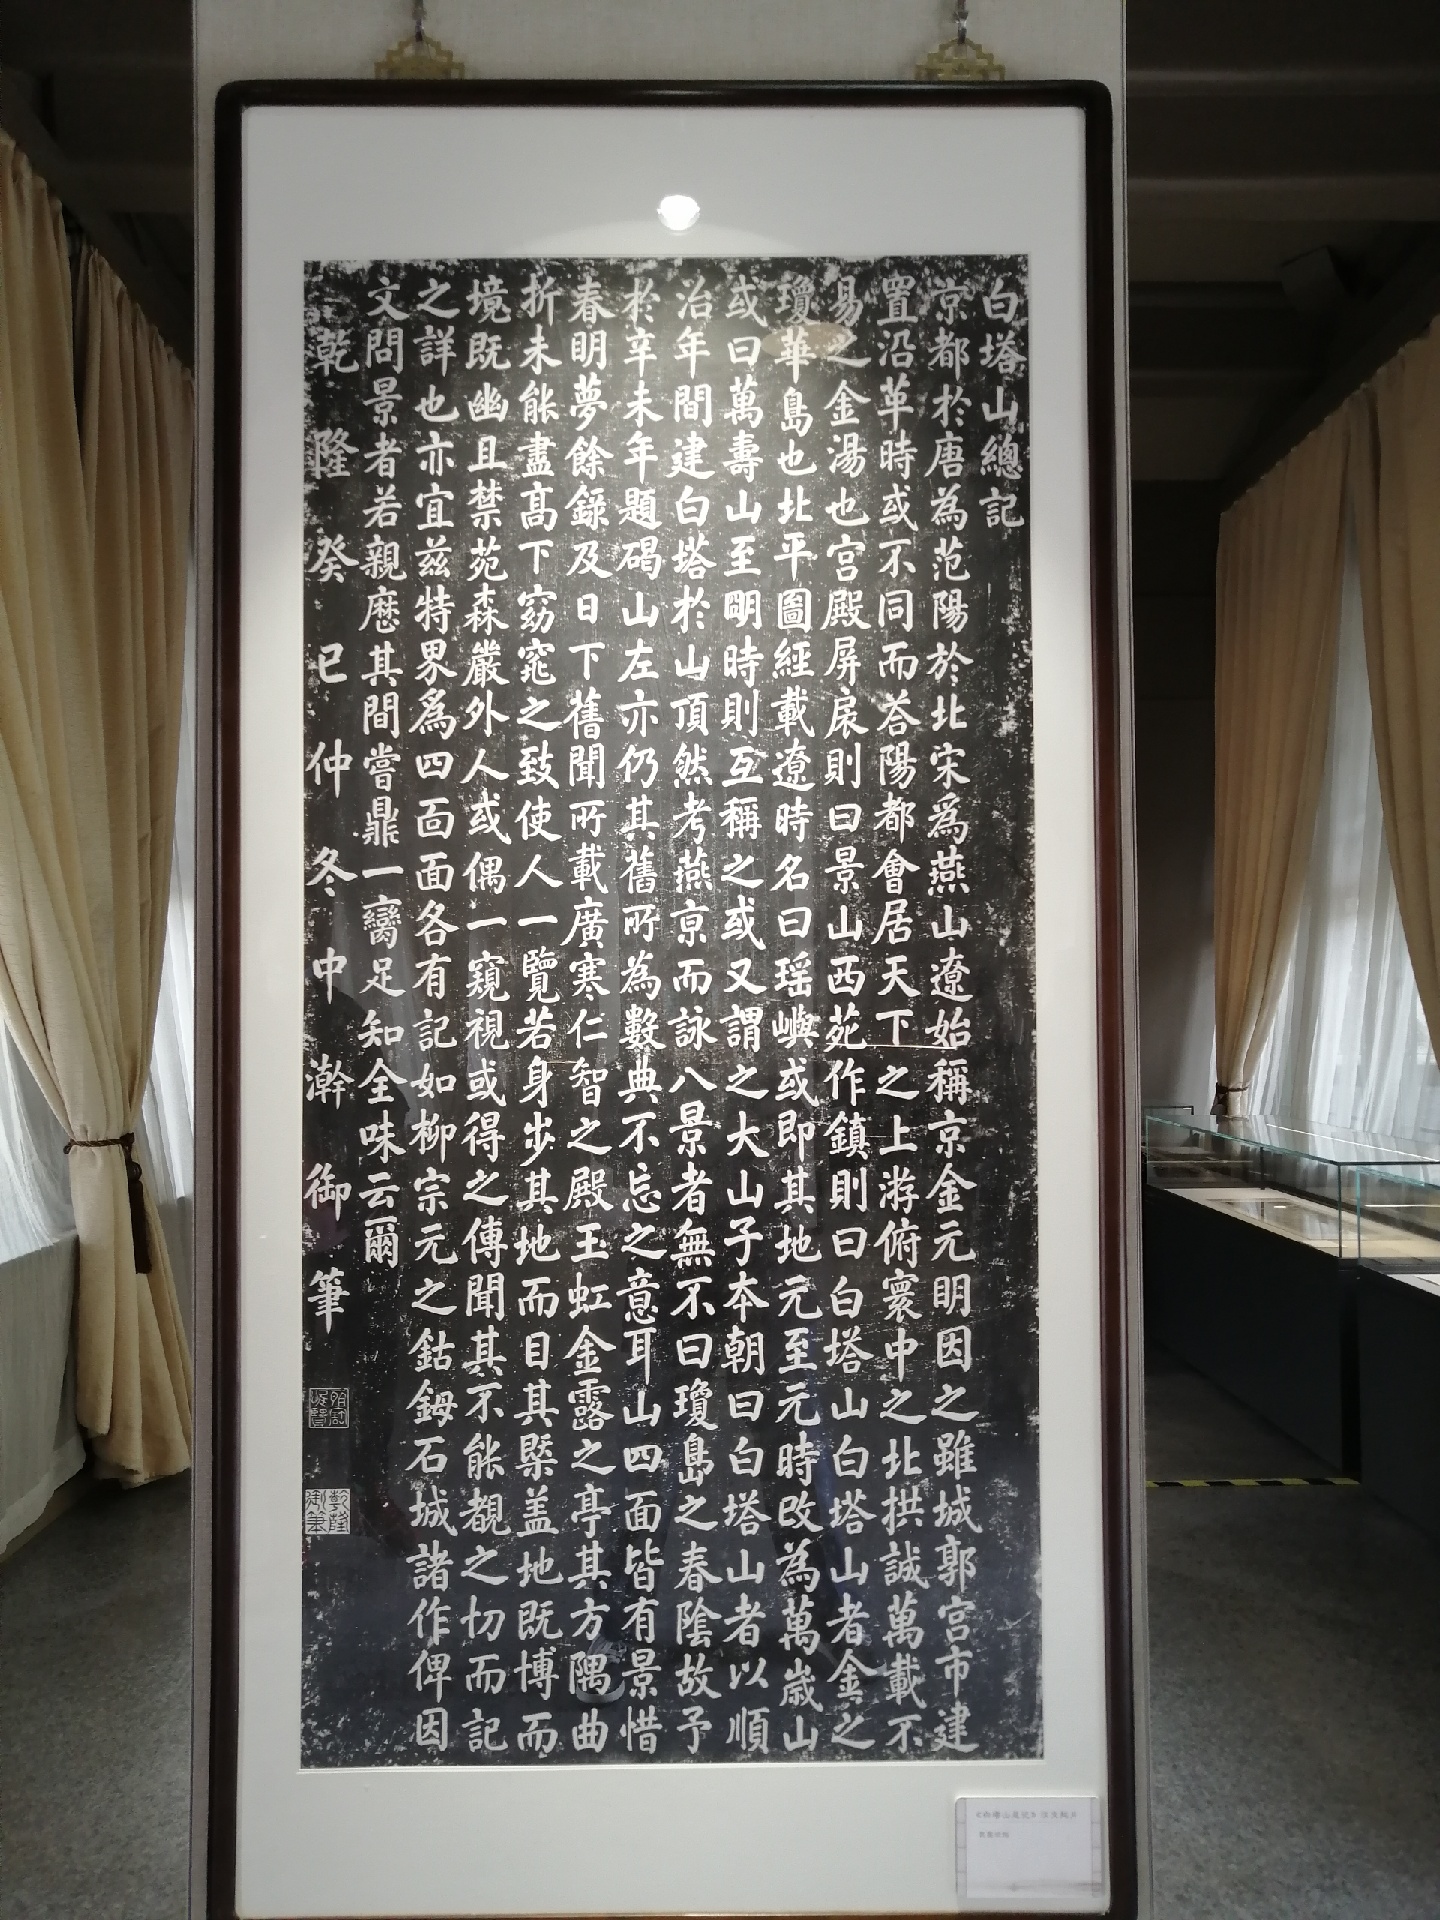 白塔山總記
京都於唐為范陽於北宋為燕山遼始稱京金元明因之雖城郭宮市建
置沿革時或不同而答陽都會居天下之上游俯寰中之北拱誠萬載不
易之金湯也宮殿屏扆則曰景山西苑作鎮則曰白塔山白塔山者金之
瓊華島也北平圖經載遼時名曰瑶嶼或即其地元至元時改為萬歲山
或曰萬壽山至明時則互稱之或又謂之大山子本朝曰白塔山者以順
治年間建白塔於山頂然考燕京而詠八景者無不曰瓊島之春陰故予
於辛未年題碣山左亦仍其舊所為數典不忘之意耳山四面皆有景惜
春明夢餘錄及日下舊聞所載廣寒仁智之殿玉虹金露之亭其方隅曲
折未能盡高下窈窕之致使人一覽若身步其地而目其槩盖地既博而
境既幽且禁苑森嚴外人或偶一窺視或得之傳聞其不能覩之切而記
之詳也亦宜兹特界為四面面各有記如柳宗元之鈷鉧石城諸作俾因
文問景者若親歷其間嘗鼎一臠足知全味云爾
乾隆癸巳仲冬中澣御筆
乾隆御筆